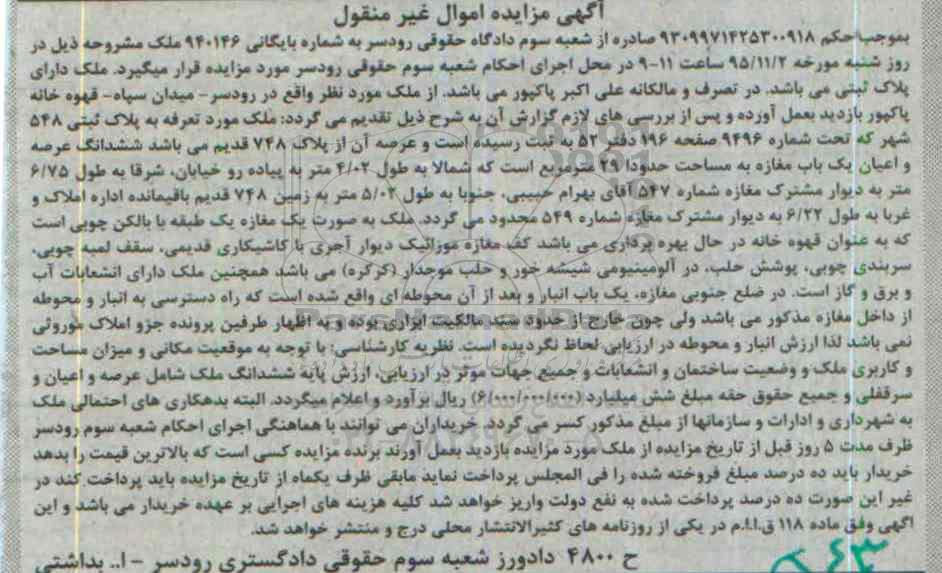 آگهی مزایده اموال غیر منقول
بموجب حکم ۹۳۰۹۹۷۱۴۲۵۳۰۰۹۱۸ صادره از شعبه سوم دادگاه حقوقی رودسر به شماره بایگانی ۹۴۰۱۴۶ ملک مشروحه ذیل در
روز شنبه مورخه ۹۵/۱۱/۲ ساعت ۱۱-۹ در محل اجرای احکام شعبه سوم حقوقی رودسر مورد مزایده قرار میگیرد. ملک دارای
پلاک ثبتی می باشد. در تصرف و مالکانه علی اکبر پاکپور می باشد. از ملک مورد نظر واقع در رودسر- میدان سپاه- قهوه خانه
پاکپور بازدید بعمل آورده و پس از بررسی های لازم گزارش آن به شرح ذیل تقدیم می گردد: ملک مورد تعرفه به پلاک ثبتی ۵۴۸
شهر که تحت شماره ۹۴۹۶ صفحه ۱۹۶ دفتر ۵۲ به ثبت رسیده است و عرصه آن از پلاک ۷۴۸ قدیم می باشد ششدانگ عرصه
و اعیان یک باب مغازه به مساحت حدودا ۲۹ مترمربع است که شمالا به طول ۴/۰۲ متر به پیاده رو خیابان، شرقا به طول ۶/۷۵
متر به دیوار مشترک مغازه شماره ۵۴۷ آقای بهرام حبیبی، جنوبا به طول ۵/۰۲ متر به زمین ۷۴۸ قدیم باقیمانده اداره املاک و
غربا به طول ۶/۲۲ به دیوار مشترک مغازه شماره ۵۴۹ محدود می گردد. ملک به صورت یک مغازه یک طبقه با بالکن چوبی است
که به عنوان قهوه خانه در حال بهره برداری می باشد کف مغازه موزائیک دیوار آجری با کاشیکاری قدیمی، سقف لمبه چوبی،
سربندی چوبی، پوشش حلب، در آلومینیومی شیشه خور و حلب موجدار (کرکره) می باشد همچنین ملک دارای انشعابات آب
و برق و گاز است. در ضلع جنوبی مغازه، یک باب انبار و بعد از آن محوطه ای واقع شده است که راه دسترسی به انبار و محوطه
از داخل مغازه مذکور می باشد ولی چون خارج از حدود سند مالکیت ابرازی بوده و به اظهار طرفین پرونده جزو املاک موروثی
نمی باشد لذا ارزش انبار و محوطه در ارزیابی لحاظ نگردیده است. نظریه کارشناسی: با توجه به موقعیت مکانی و میزان مساحت
و کاربری ملک و وضعیت ساختمان و انشعابات و جمیع جهات موثر در ارزیابی، ارزش پایه ششدانگ ملک شامل عرصه و اعیان و
سرقفلی و جمیع حقوق حقه مبلغ شش میلیارد (۶/۰۰۰/۰۰۰/۰۰۰) ریال برآورد و اعلام میگردد. البته بدهکاری های احتمالی ملک
به شهرداری و ادارات و سازمانها از مبلغ مذکور کسر می گردد. خریداران می توانند با هماهنگی اجرای احکام شعبه سوم رودسر
ظرف مدت ۵ روز قبل از تاریخ مزایده از ملک مورد مزایده بازدید بعمل آورند برنده مزایده کسی است که بالاترین قیمت را بدهد
خریدار باید ده درصد مبلغ فروخته شده را فی المجلس پرداخت نماید مابقی ظرف یکماه از تاریخ مزایده باید پرداخت کند در
غیر این صورت ده درصد پرداخت شده به نفع دولت واریز خواهد شد کلیه هزینه های اجرایی بر عهده خریدار می باشد و این
اگهی وفق ماده ۱۱۸ ق.ا.ا.م در یکی از روزنامه های کثیرالانتشار محلی درج و منتشر خواهد شد.
ح ۴۸۰۰ دادورز شعبه سوم حقوقی دادگستری رودسر - ا.. بداشتی